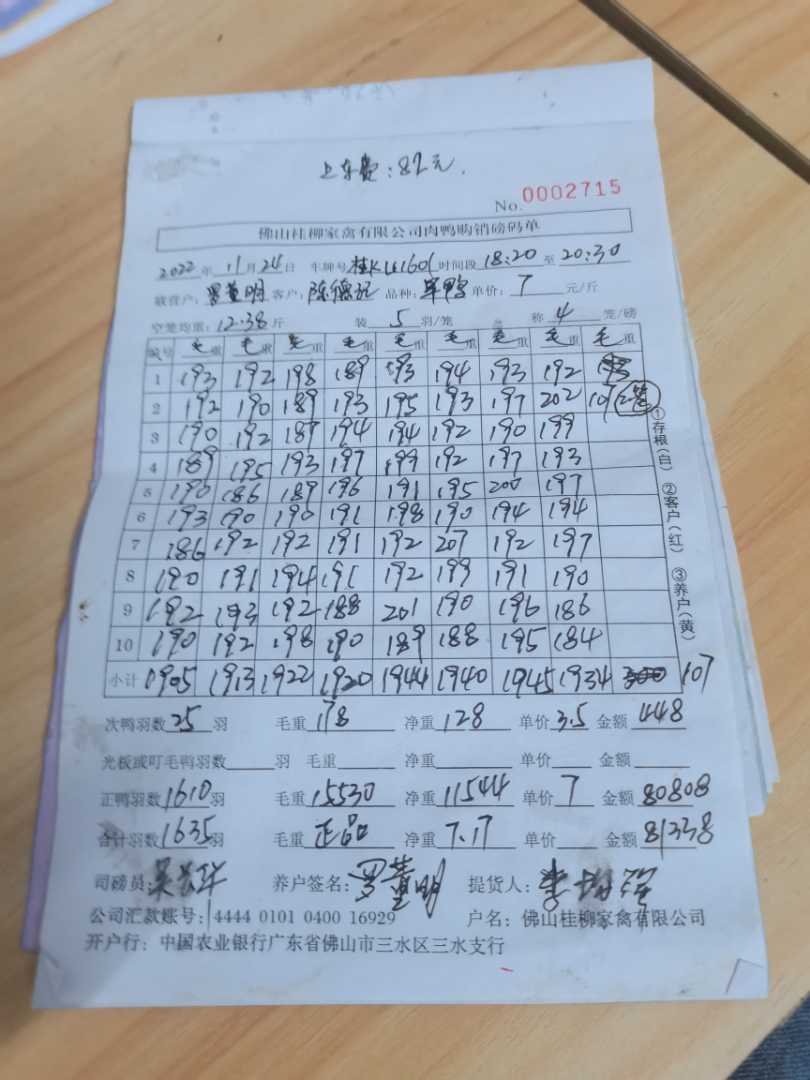 上车费：82元.
No. 0002715
佛山桂柳家禽有限公司肉鸭购销磅码单
2022年 11月24日 车牌号 桂KLE1601 时间段 18:20 至 20:30
被营户： 罗董明 客户： 陈德记 品种： 单价： 7 元/斤
空笼均重：12.38斤 装 5 羽/笼 称 4 笼/磅
编号 毛重 毛重 毛重 毛重 毛重 毛重 毛重 毛重 毛重
1 193 192 198 189 193 194 193 192
2 192 190 189 193 195 193 197 202 107
3 190 192 187 194 194 192 190 199
4 189 195 193 197 199 192 197 193
5 190 186 189 196 191 195 200 197
6 193 190 190 191 198 190 194 194
7 186 192 192 191 192 207 192 197
8 190 191 194 191 192 199 191 190
9 192 193 192 188 201 190 196 186
10 190 192 198 190 189 188 195 184
小计 1905 1913 1922 1920 1944 1940 1945 1934 107
次鸭羽数 25 羽 毛重 178 净重 128 单价 3.5 金额 448
光板或叮毛鸭羽数 羽 毛重 净重 单价 金额
正鸭羽数 1610 羽 毛重 15530 净重 11544 单价 7 金额 80808
合计羽数 1635 羽 毛重 正品 净重 7.17 单价 金额 81338
司磅员： 养户签名： 罗董明 提货人： 李
公司汇款账号： 4444 0101 0400 16929 户名：佛山桂柳家禽有限公司
开户行：中国农业银行广东省佛山市三水区三水支行
①存根(白) ②客户(红) ③养户(黄)